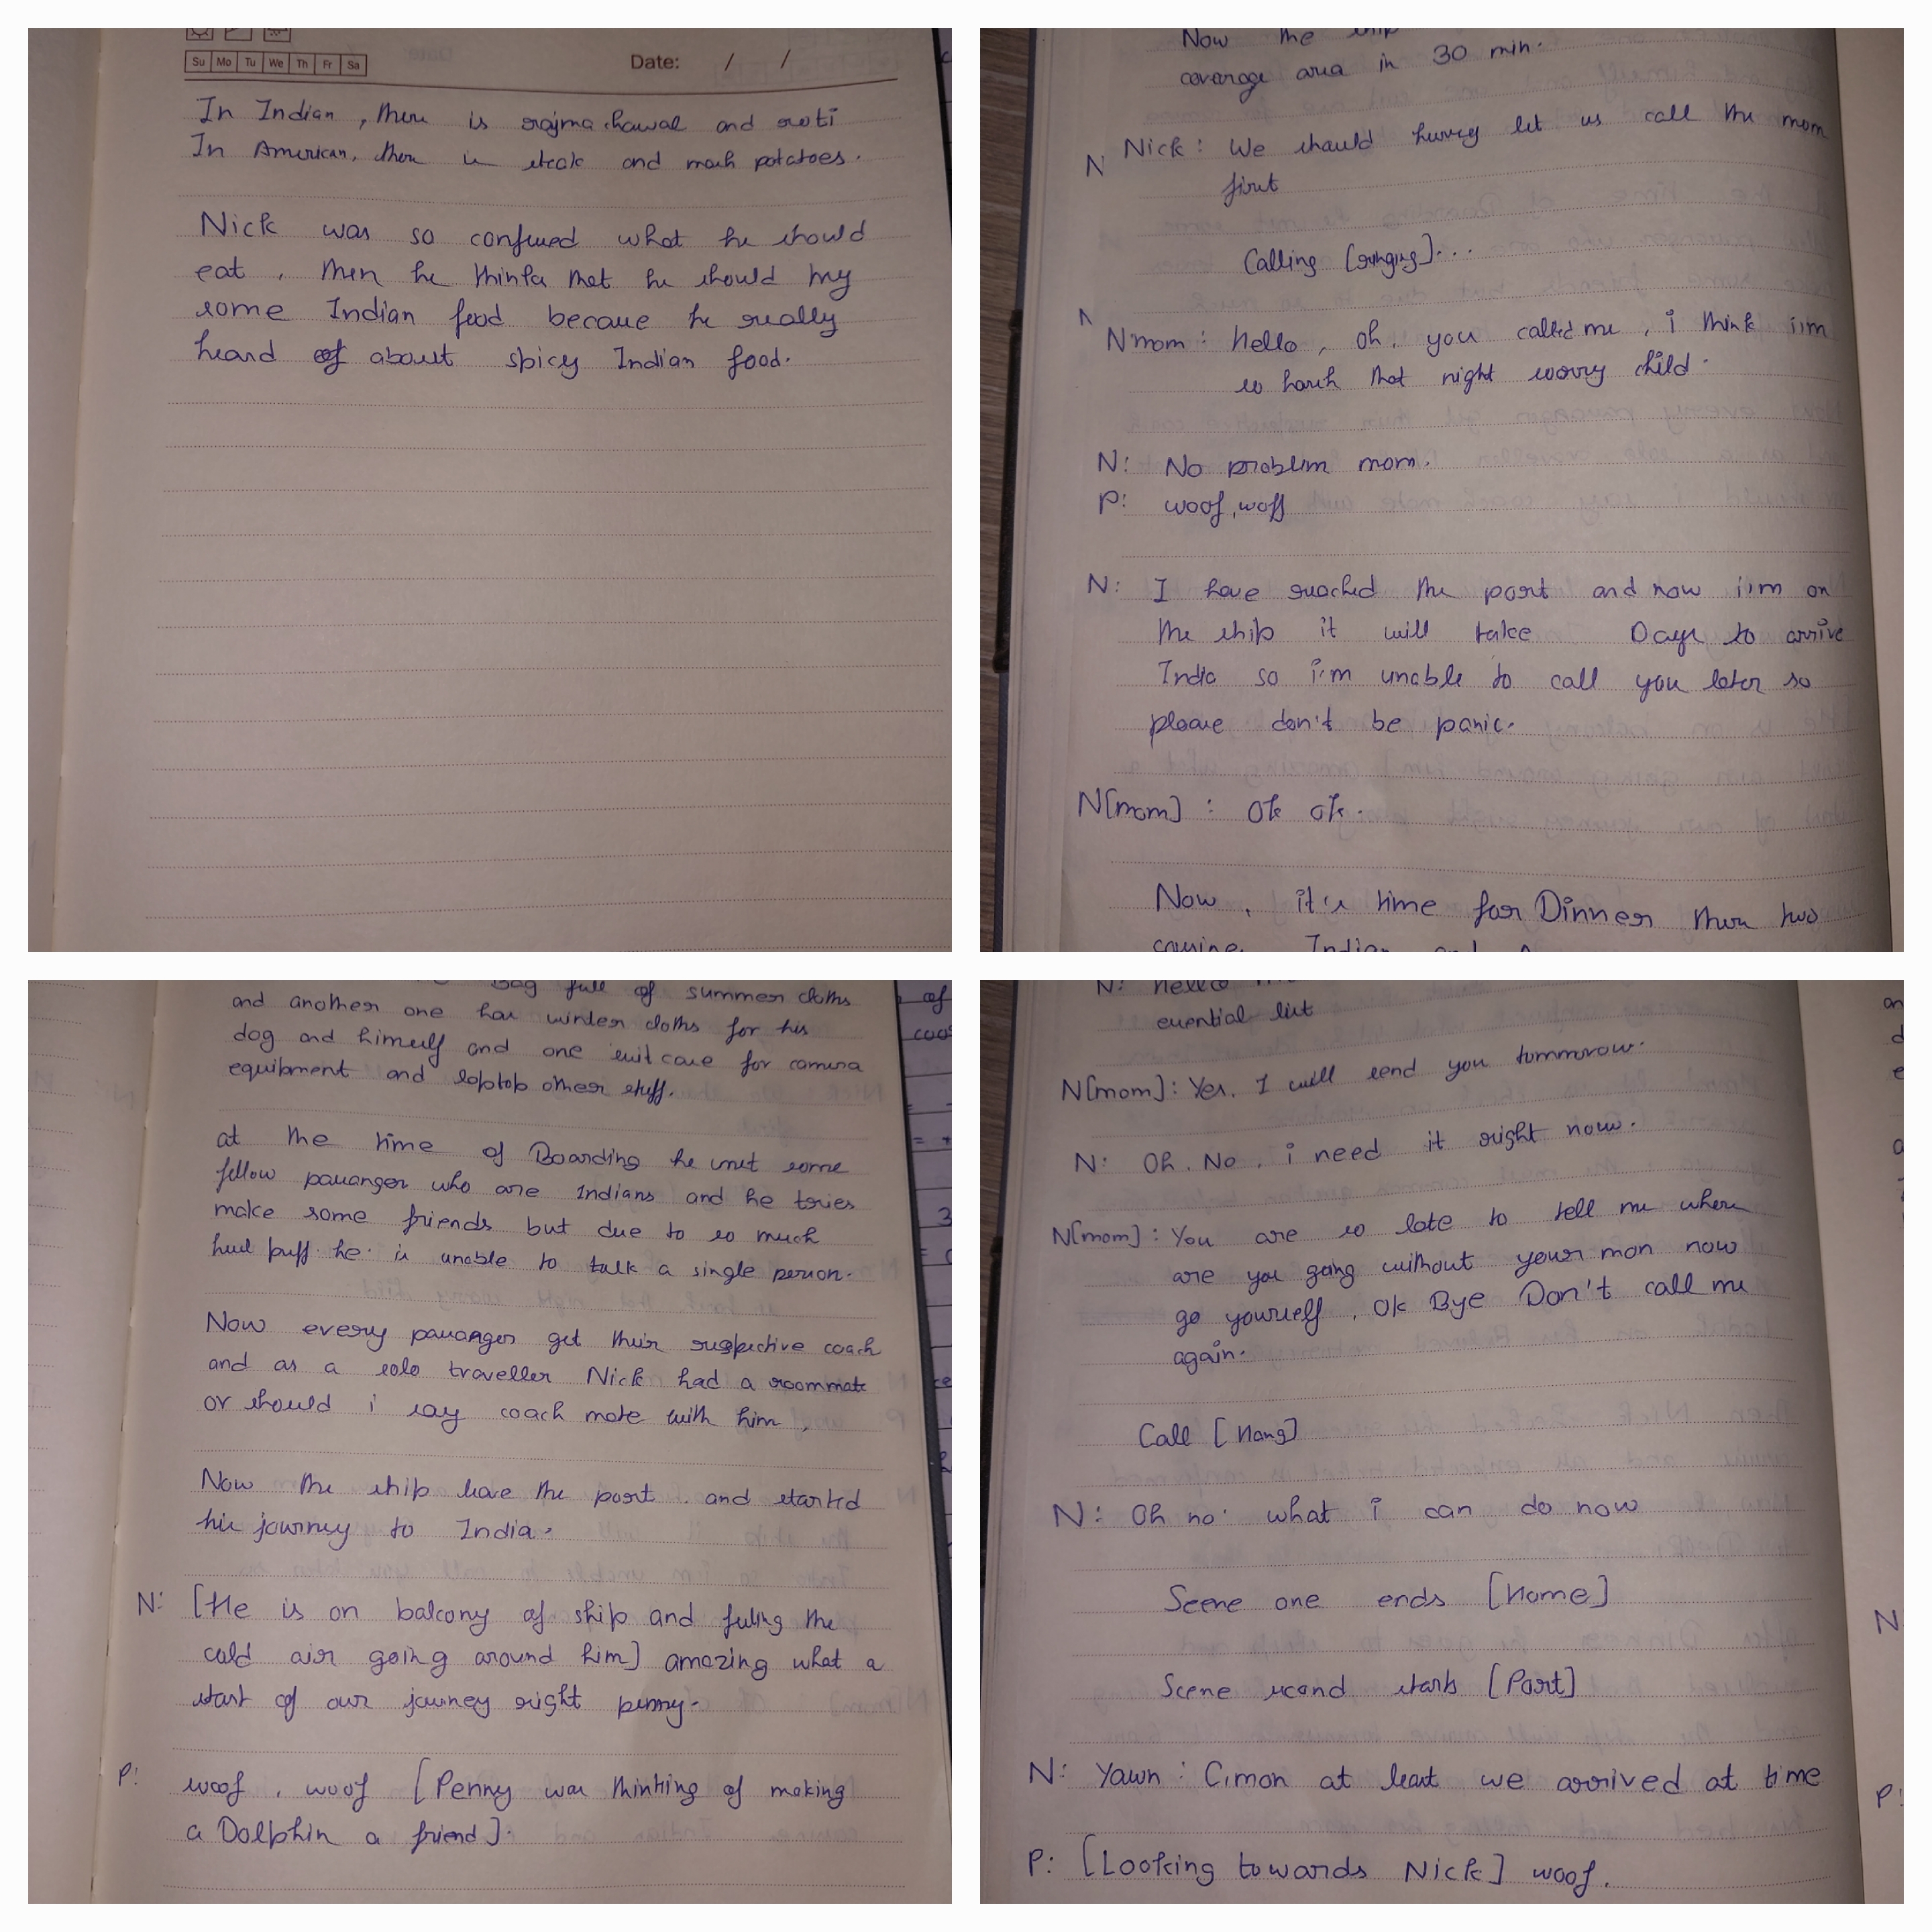 Su Mo Tu We Th Fr Sa
Date: / /
In Indian, there is rajma chawal and roti
In American, there is steak and mash potatoes.
Nick was so confused what he should
eat, then he thinks that he should try
some Indian food because he really
heard of about spicy Indian food.
Now the ship
coverage area in 30 min.
N Nick: We should hurry let us call the mom
first
Calling [ringing]...
N'mom: hello, oh, you called me, i think i'm
so harsh that night sorry child.
N: No problem mom.
P: woof, woff
N: I have reached the port and now i'm on
the ship it will take Days to arrive
India so i'm unable to call you later so
please don't be panic.
N[mom]: Ok ok.
Now, it's time for Dinner there two
Indian and
Bag full of summer cloths
and another one has winter cloths for his
dog and himself and one suit case for camera
equipment and laptop other stuff.
at the time of Boarding he met some
fellow passanger who are Indians and he tries
make some friends but due to so much
he is unable to talk a single person.
Now every passanger get their respective coach
and as a solo traveller Nick had a roommate
or should i say coach mate with him.
Now the ship leave the port. and started
his journey to India.
N: [He is on balcony of ship and feling the
cold air going around him] amazing what a
start of our journey right penny.
P: woof, woof [Penny was thinking of making
a Dolphin a friend].
N: hello
essential list
N[mom]: Yes. I will send you tommrow.
N: Oh. No, i need it right now.
N[mom]: You are so late to tell me where
are you going without your mon now
go yourself, Ok Bye Don't call me
again.
Call [Hang]
N: Oh no. what i can do now
Scene one ends [Home]
Scene scond starts [Port]
N: Yawn: C'mon at least we arrived at time
P: [Looking towards Nick] woof.